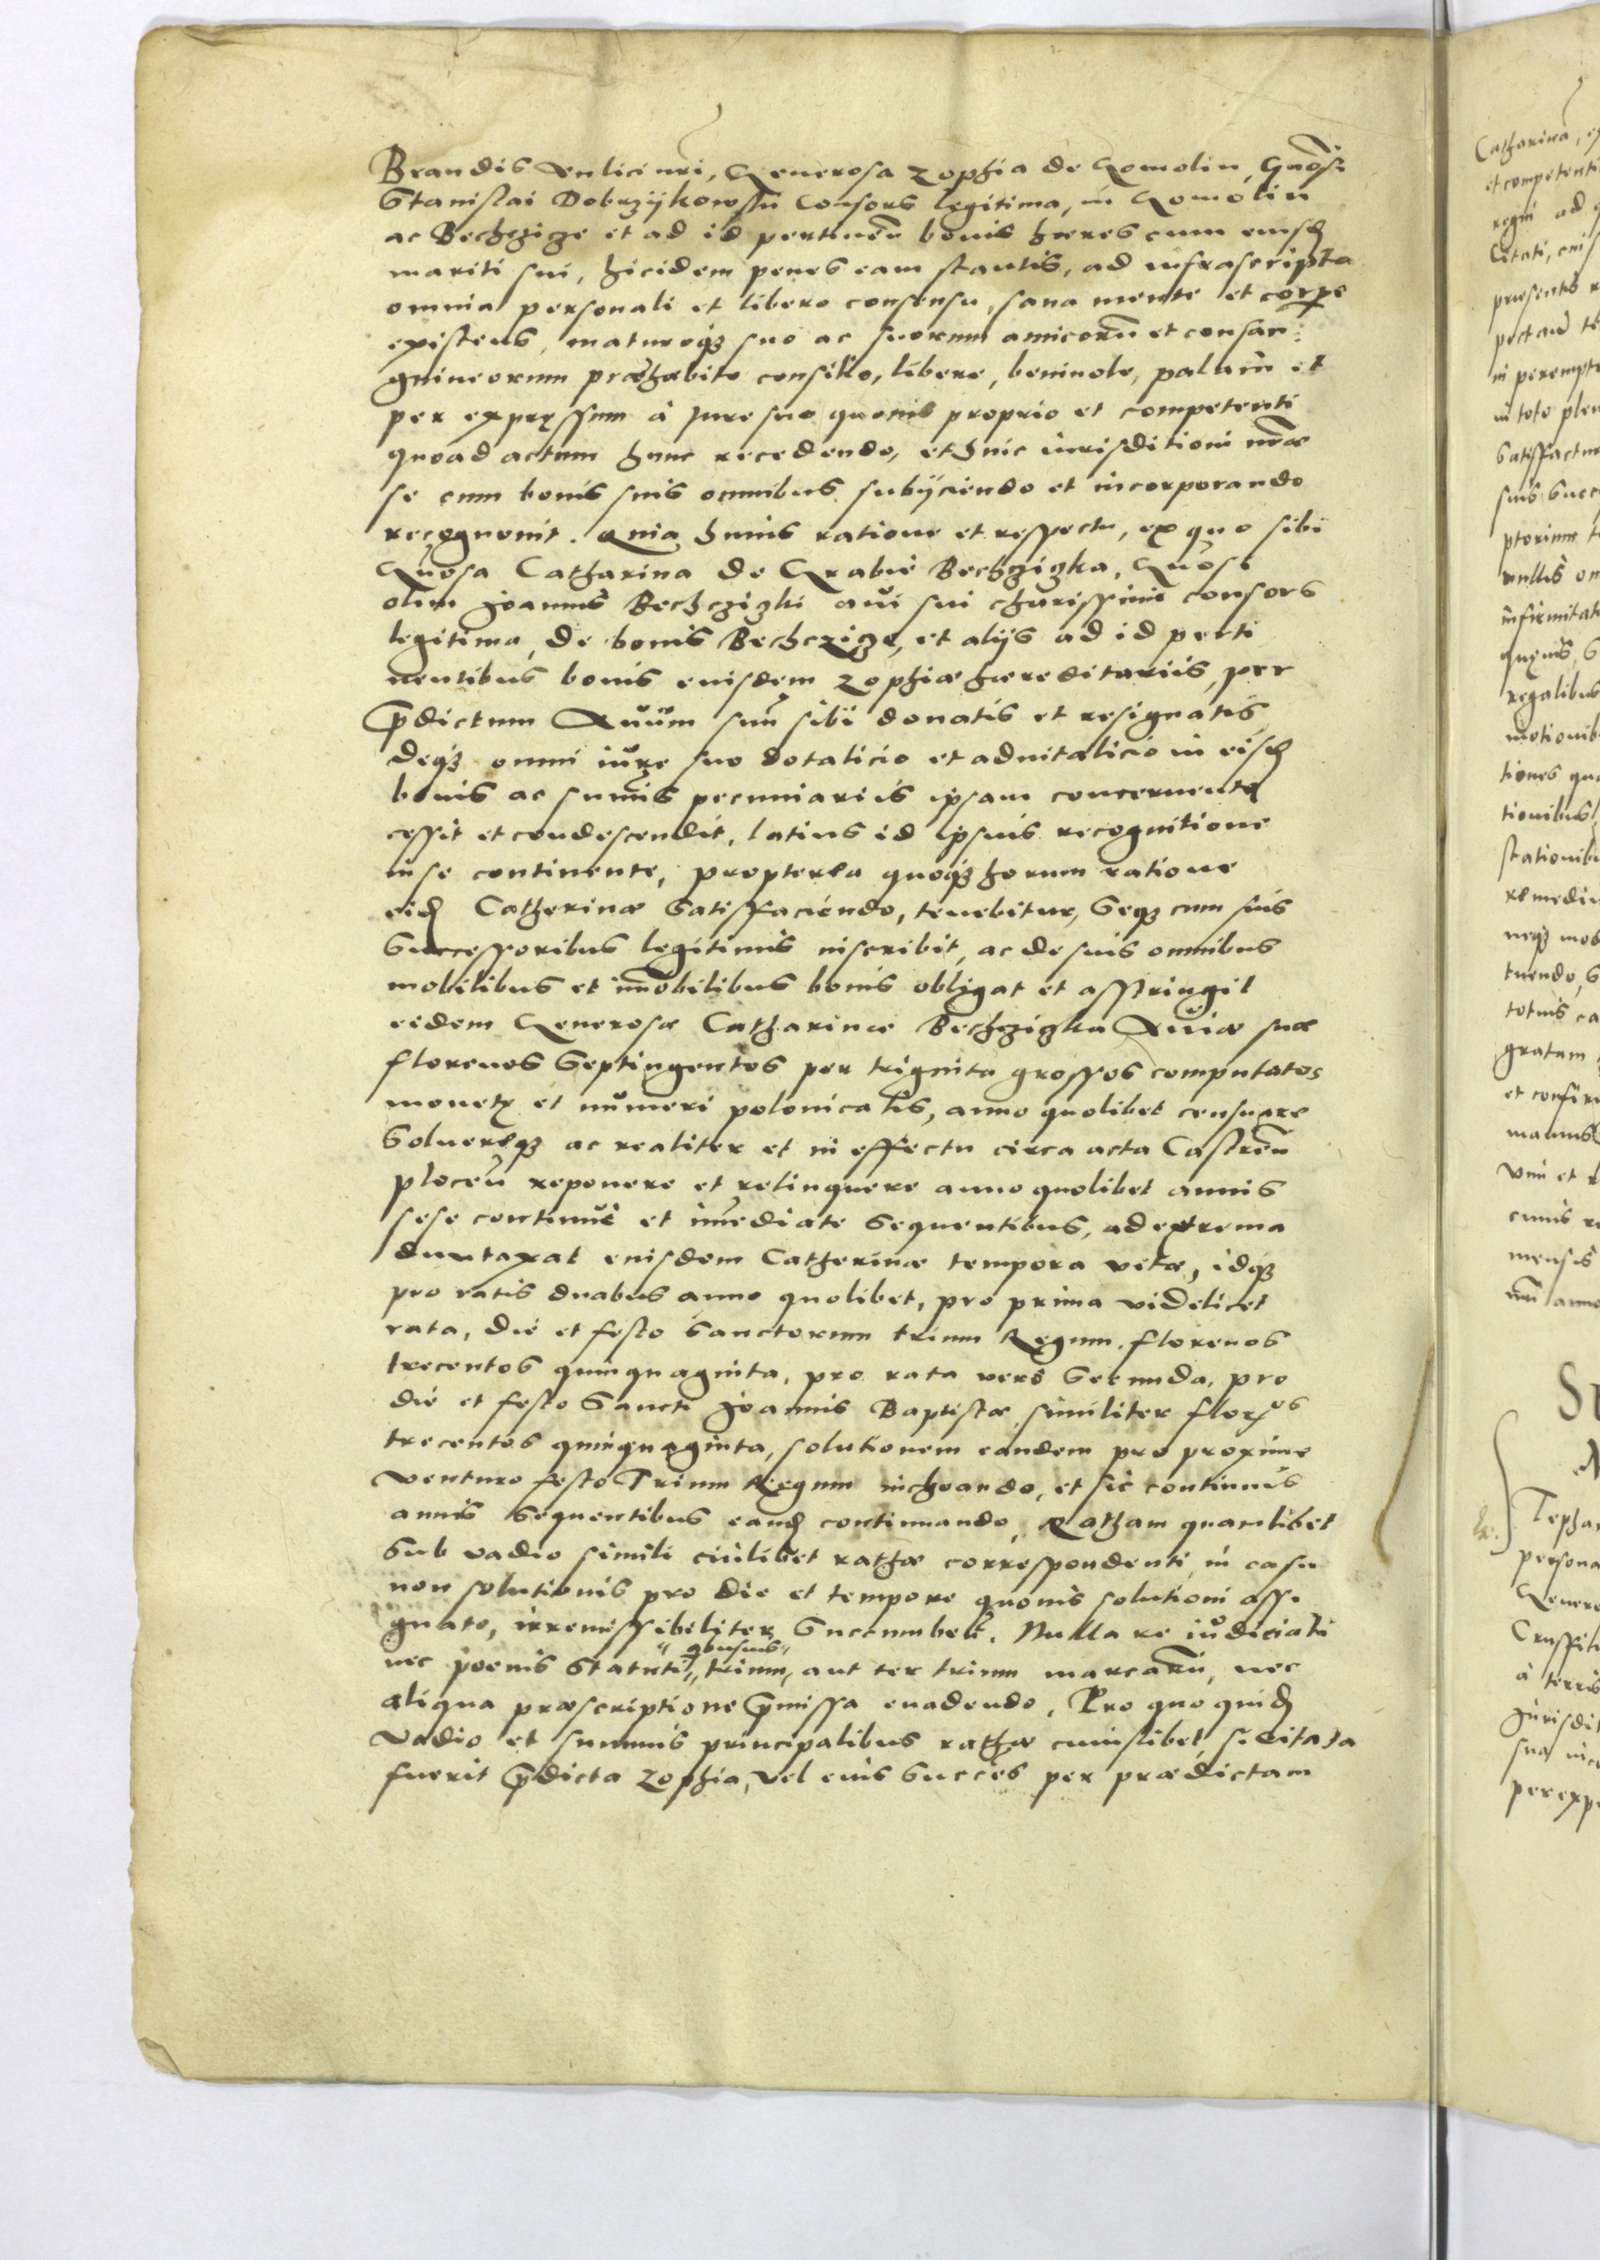 Brandis Aulici nri, Generosa Zophia de Gomolin, Gnosi
Stanislai Dobrzijkowskij Consors legitima, in Gomolin
ac Bechczicze et ad id pertinen bonis hæres cum eiusd
mariti sui, hicidem penes eam stantis, ad infrascripta
omnia personali et libero consensu, sana mente et corpe
existens, maturoq3 suo ac suorum amicoru et consan:
guineorum præhabito consilio, libere, beniuole, palam et
per expręssum à Jure suo quouis proprio et competenti
quoad actum hunc recedendo, et huic iurisditioni nræ
se cum bonis suis omnibus subijciendo et incorporando
recognouit. Quia huius ratione et respectu, ex quo sibi
Gnosa Catharina de Grabie Bechczizka, Gnosi
olim Joannis Bechczizki aui sui charissimi consors
legitima, de bonis Bechczicze, et alijs ad id perti
nentibus bonis eiusdem Zophiæ hæreditariis, per
pdictum Auum suu sibi donatis et resignatis
deq3 omni iure suo dotalicio et aduitalicio in eisd
bonis ac sumis pecuniariis ipsam concernente
cessit et condescendit, latius id ipsius recognitione
in se continente, propterea quoq3 horum ratione
eid Catherinæ satisfaciendo, tenebitur, seq3 cum suis
Successoribus legitimis inscribit, ac de suis omnibus
mobilibus et imobilibus bonis obligat et asstringit
eidem Generosæ Catharinæ Bechczizka Auiæ suæ
florenos Septingentos per triginta grossos computatos
monetę et numeri polonicalis, anno quolibet censuare
Soluereq3 ac realiter et in effectu circa acta Castren
plocen reponere et relinquere anno quolibet annis
sese continuè et imediate sequentibus, ad extrema
duntaxat eiusdem Catherinæ tempora vitæ, idq3
pro ratis duabus anno quolibet, pro prima videlicet
rata, die et festo Sanctorum trium Regum florenos
trecentos quinquaginta, pro rata verò Secunda, pro
die et festo Sancti Joannis Baptistæ similiter flor os
trecentos quinquaginta, solutionem eandem pro proxime
venturo festo Trium Regum inchoando, et sic continuis
annis sequentibus eand continuando, Ratham quamlibet
Sub vadio simili cuilibet rathæ correspondenti, in casu
non solutionis pro die et tempore quouis solutioni assi
gnato, irremissibiliter Succumbet. Nulla re iudiciali
nec poenis Statuti quibusuis trium, aut ter trium marcaru, nec
aliqua præscriptione pmissa euadendo. Pro quo quid
Vadio et summis principalibus rathæ cuiuslibet, si citata
fuerit pdicta Zophia, vel eius Succes per prædictam